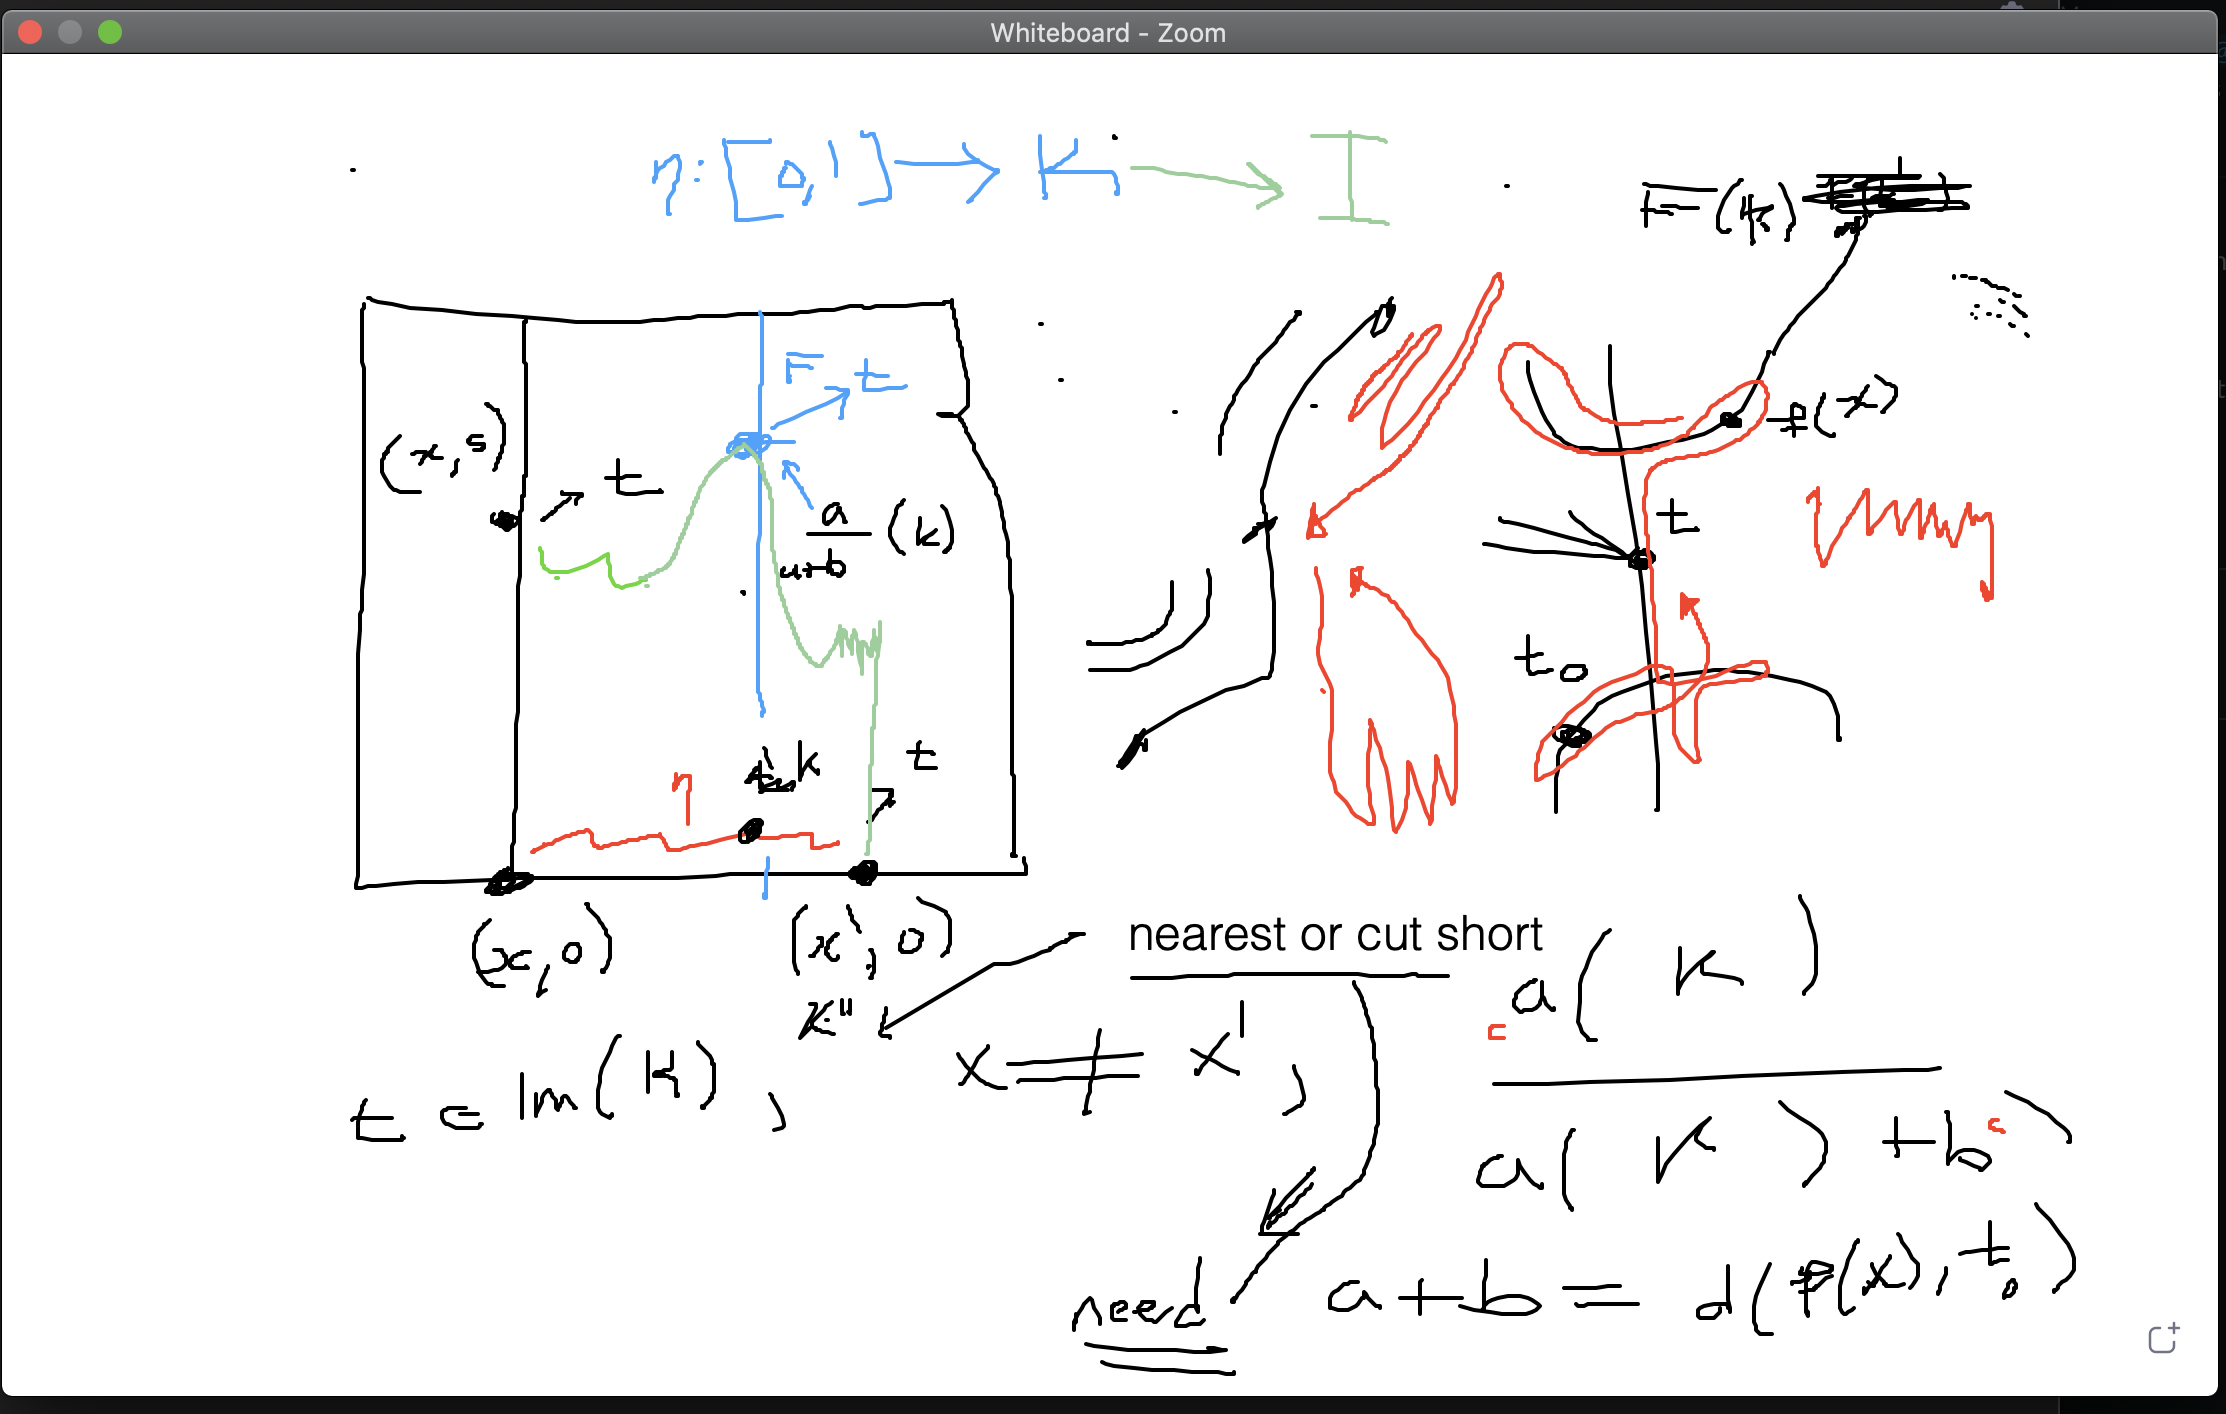 Whiteboard - Zoom
η: [0,1] → K → I
F(k)
F t
(x,s) t
f(x)
a
(k)
a+b
t
t₀
η k t
(x,0) (x',0)
nearest or cut short
x"
t ∈ Im(K), x ≠ x',
a(K)
a(K)+b
need a+b = d(f(x), t₀)